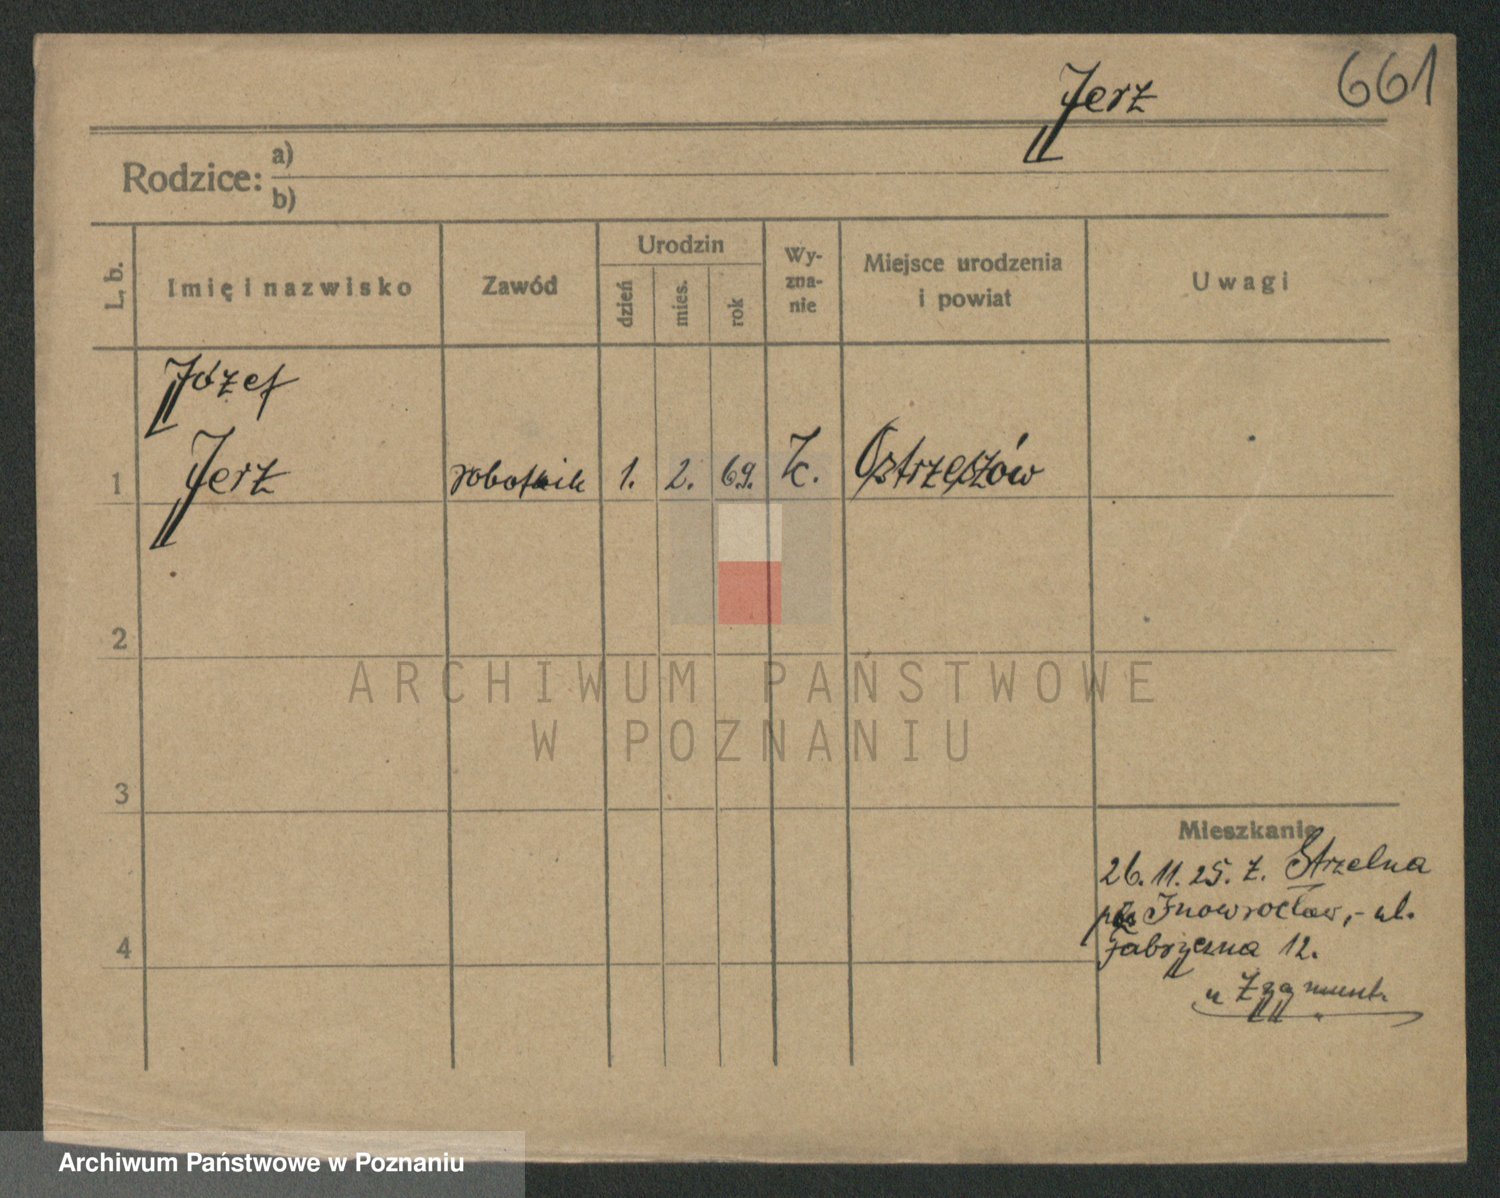 661
Jerz
Rodzice: a)
b)
L. b.
Imię i nazwisko
Zawód
Urodzin
dzień
mies.
rok
Wy-
zna-
nie
Miejsce urodzenia
i powiat
Uwagi
Józef
1 Jerz robotnik 1. 2. 69. K. Ostrzeszów
2
ARCHIWUM PAŃSTWOWE
W POZNANIU
3
Mieszkanie
26.11.25. z. Strzelna
Inowrocław, - ul.
Fabryczna 12.
4
u Zygmunt.
Archiwum Państwowe w Poznaniu